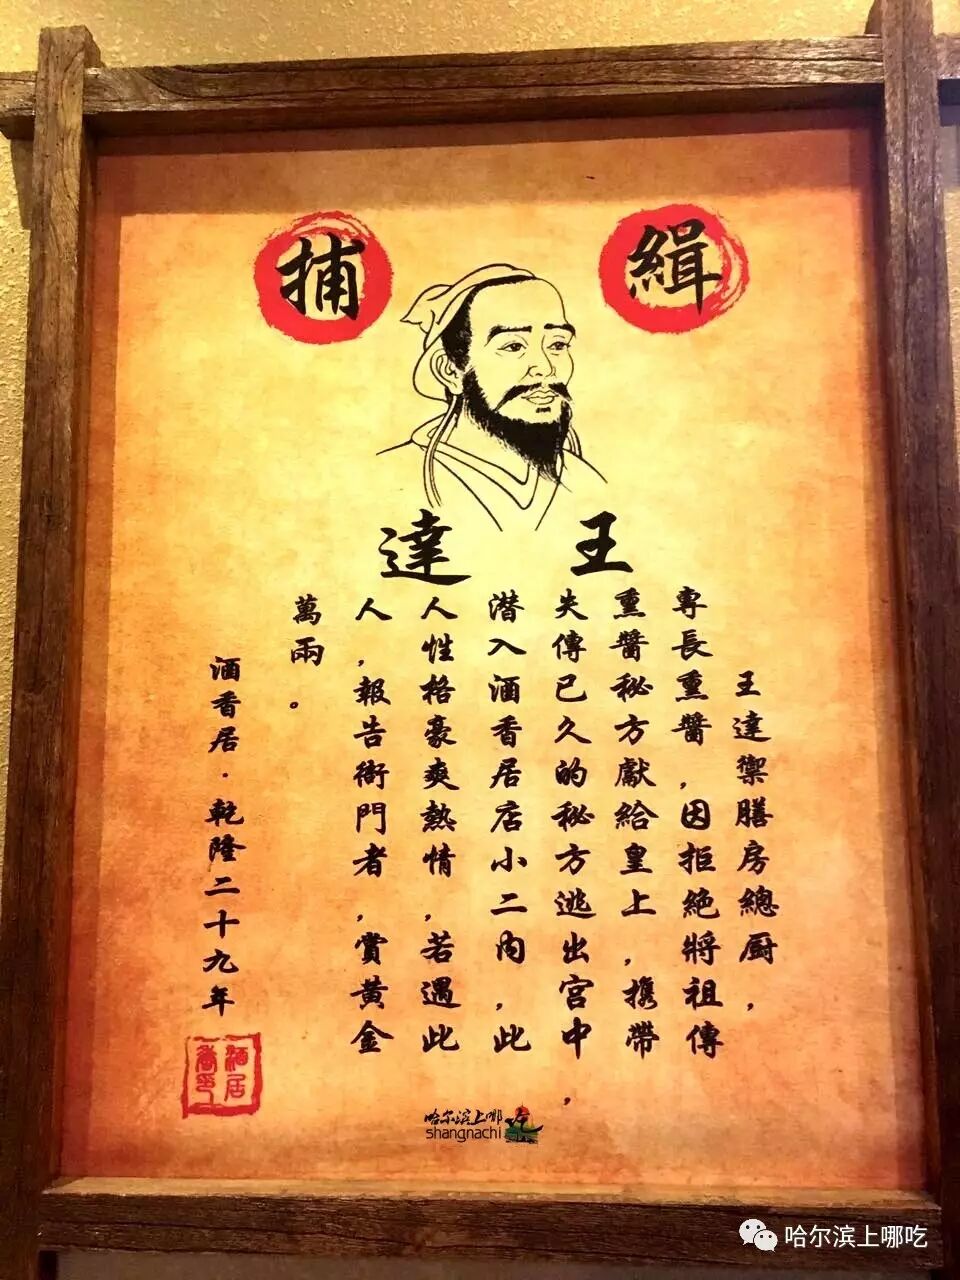 緝捕
王達
王達禦膳房總厨，
專長熏醬，因拒絶將祖傳
熏醬秘方獻給皇上，携帶
失傳已久的秘方逃出宫中，
潜入酒香居店小二内，此
人性格豪爽熱情，若遇此
人，報告衙門者，賞黄金
萬兩。
酒香居·乾隆二十九年
酒居
香印
哈尔滨上哪吃
shangnachi
哈尔滨上哪吃